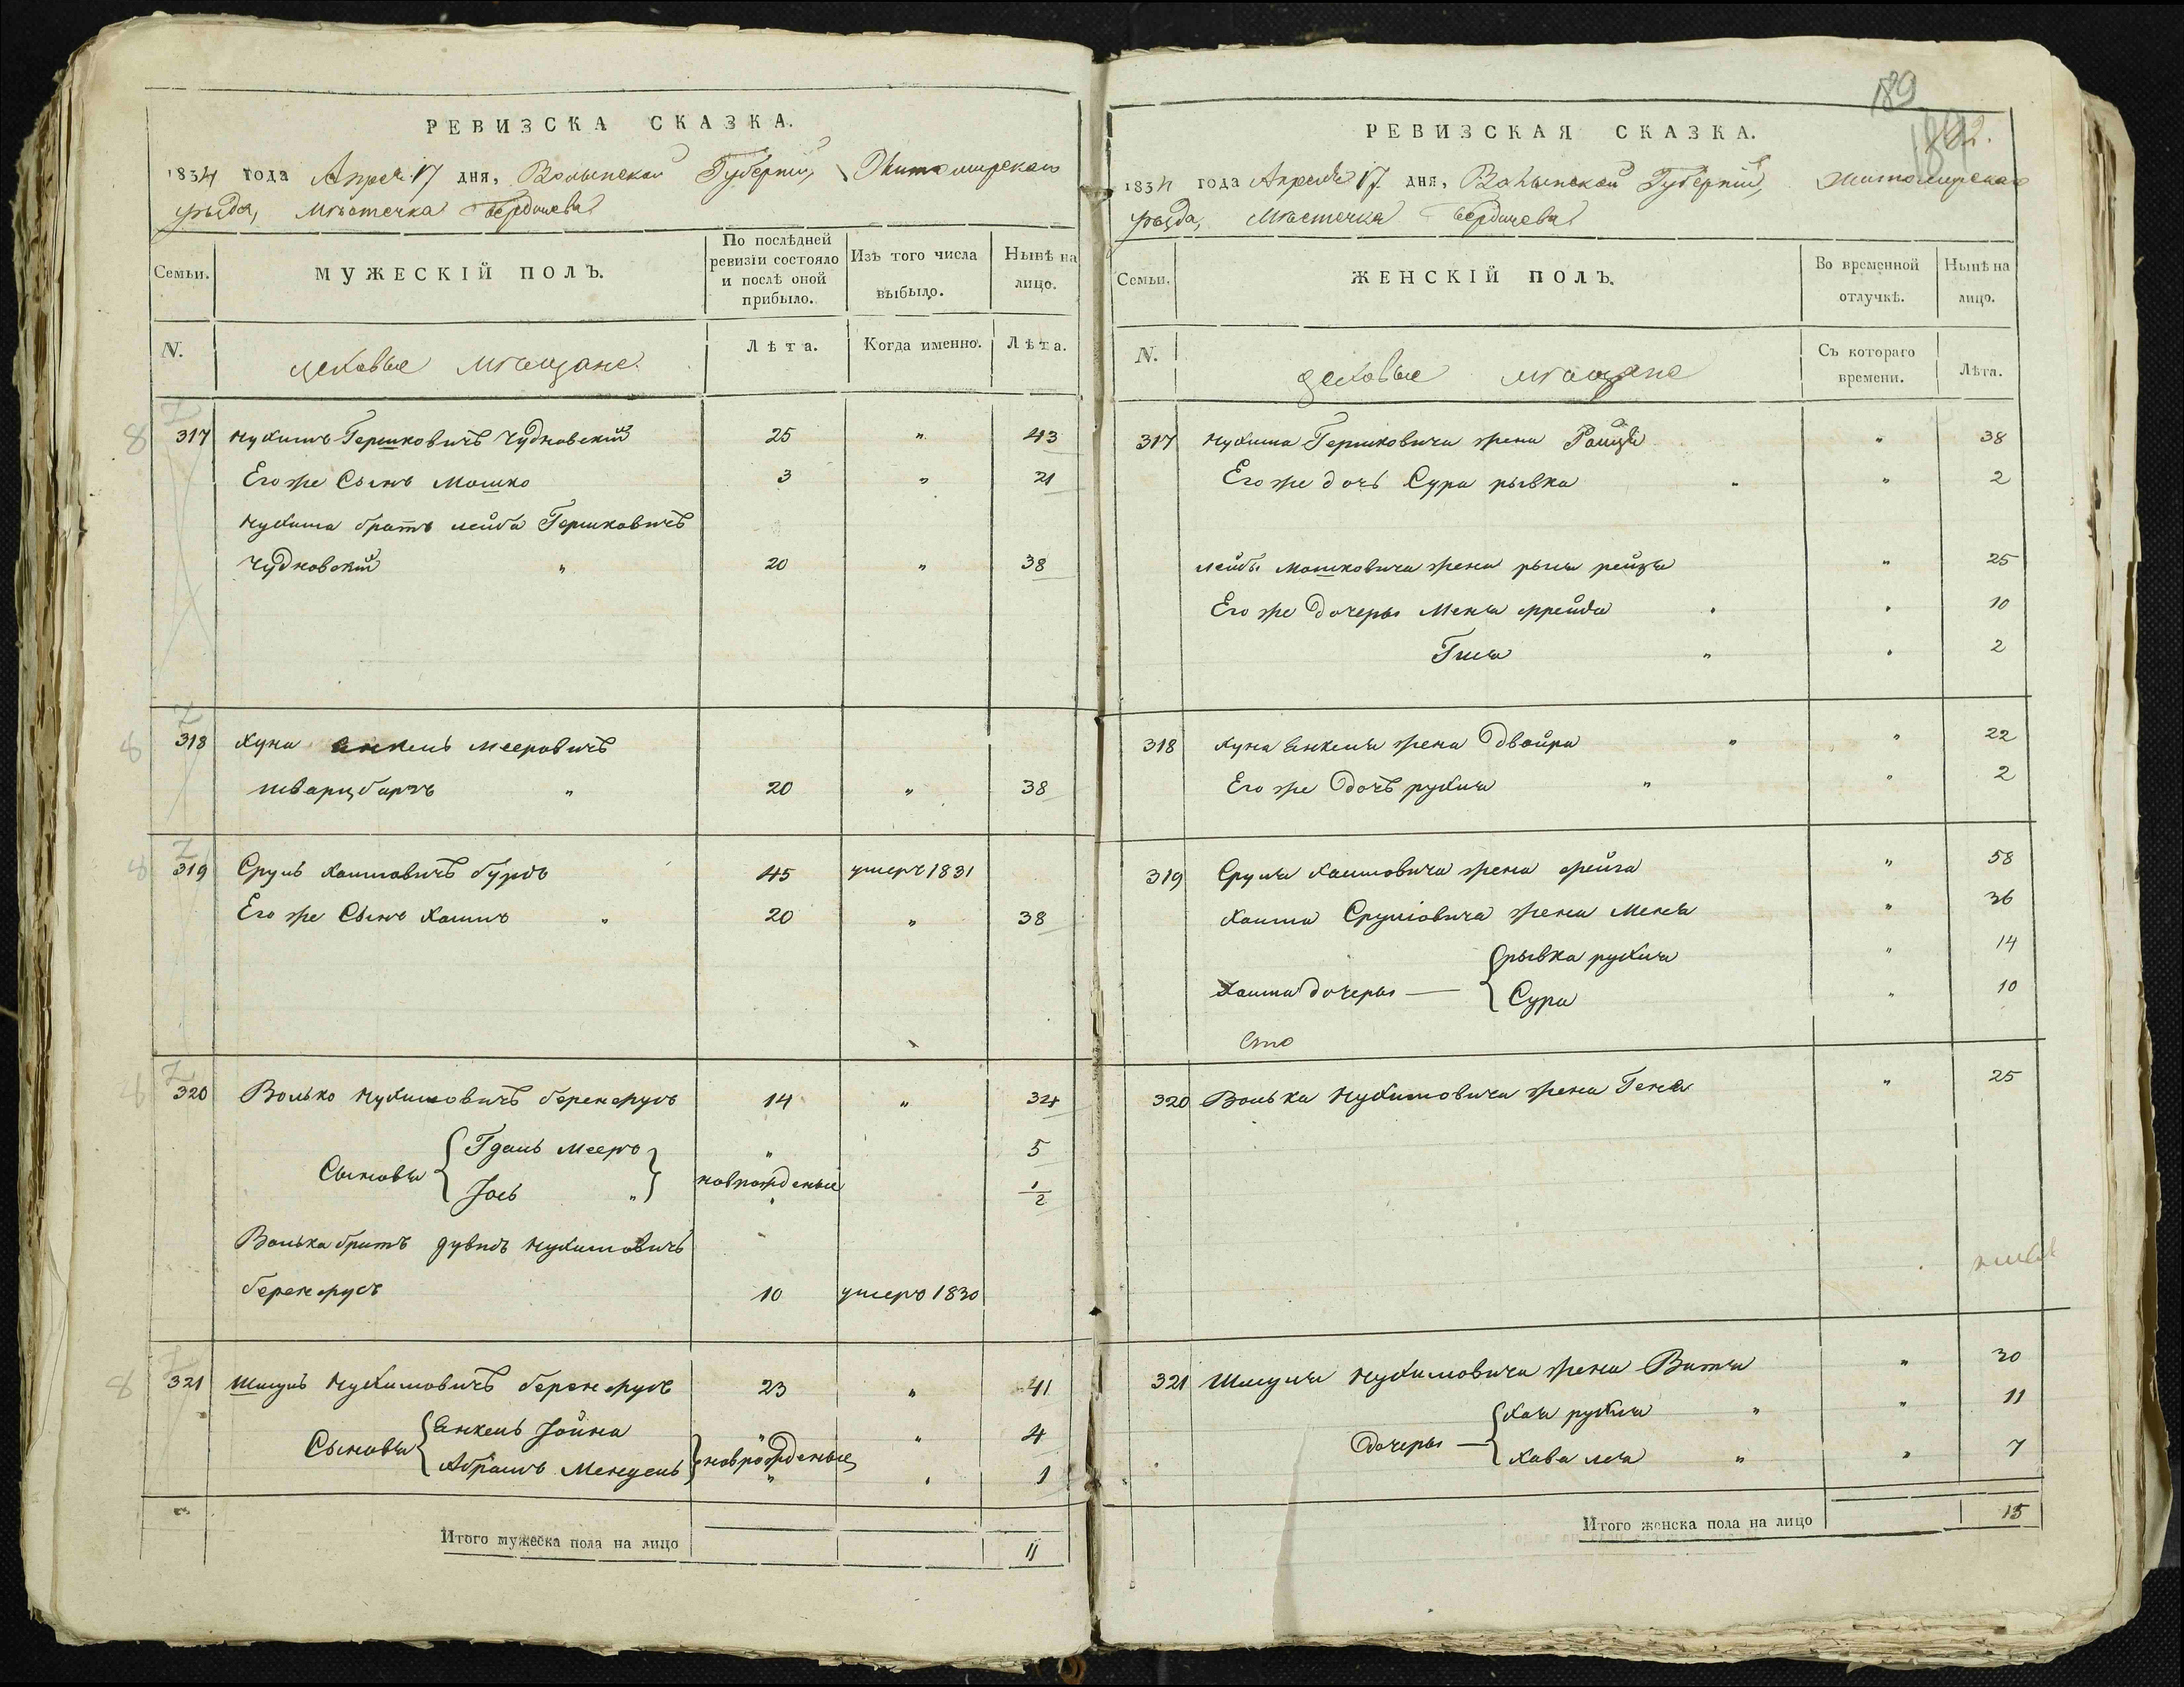 РЕВИЗСКА СКАЗКА.
1834 года Апреля 17 дня, Волынской Губерніи, Житомирскаго
уѣзда, Мѣстечка Бердичева
Семьи. МУЖЕСКІЙ ПОЛЪ. По послѣдней ревизіи состояло и послѣ оной прибыло. Изъ того числа выбыло. Нынѣ на лицо.
N. цеховые мѣщане Лѣта. Когда именно. Лѣта.
317 Нухимъ Гершковичъ Чудновскій 25 " 43
Его же Сынъ Мошко 3 " 21
Нухима братъ лейба Гершковичъ
Чудновскій " 20 " 38
318 Хуна Янкель Мееровичъ
шварцбургъ " 20 " 38
319 Сруль Хаимовичъ бурдъ 45 умеръ 1831
Его же Сынъ Хаимъ " 20 " 38
320 Волько Нухимовичъ беренфусъ 14 " 32
Сыновья { Гдаль Мееръ } " 5
Іось " новрожденые 1/2
Волька братъ дувидъ Нухимовичъ
беренфусъ 10 умеръ 1830
321 Шмуль Нухимовичъ беренфусъ 23 " 41
Сыновья { Янкель Іойна } " " 4
Абрамъ Мендель новрожденые " 1
Итого мужеска пола на лицо 11
189
РЕВИЗСКАЯ СКАЗКА.
1834 года Апреля 17 дня, Волынской Губерніи, Житомирскаго
уѣзда, Мѣстечка Бердичева
Семьи. ЖЕНСКІЙ ПОЛЪ. Во временной отлучкѣ. Нынѣ на лицо.
N. цеховые мѣщане Съ котораго времени. Лѣта.
317 Нухима Гершковича жена Раица " 38
Его же дочь Сура рывка " " 2
лейбы Мошковича жена рыся рейзя " 25
Его же дочеры Меня фрейда " " 10
Гися " " 2
318 Хуна Янкеля жена Двойра " " 22
Его же дочъ рухля " " 2
319 Сруля Хаимовича жена фейга " 58
Хаима Сруліовича жена Меня " 36
Хаима дочеры — { рывка рухля " 14
Сура " 10
320 Волька Нухимовича жена Геня " 25
321 Шмуля Нухимовича жена Витя " 30
Дочеры — { Хая рухля " " 11
Хава лея " " 7
Итого женска пола на лицо 15